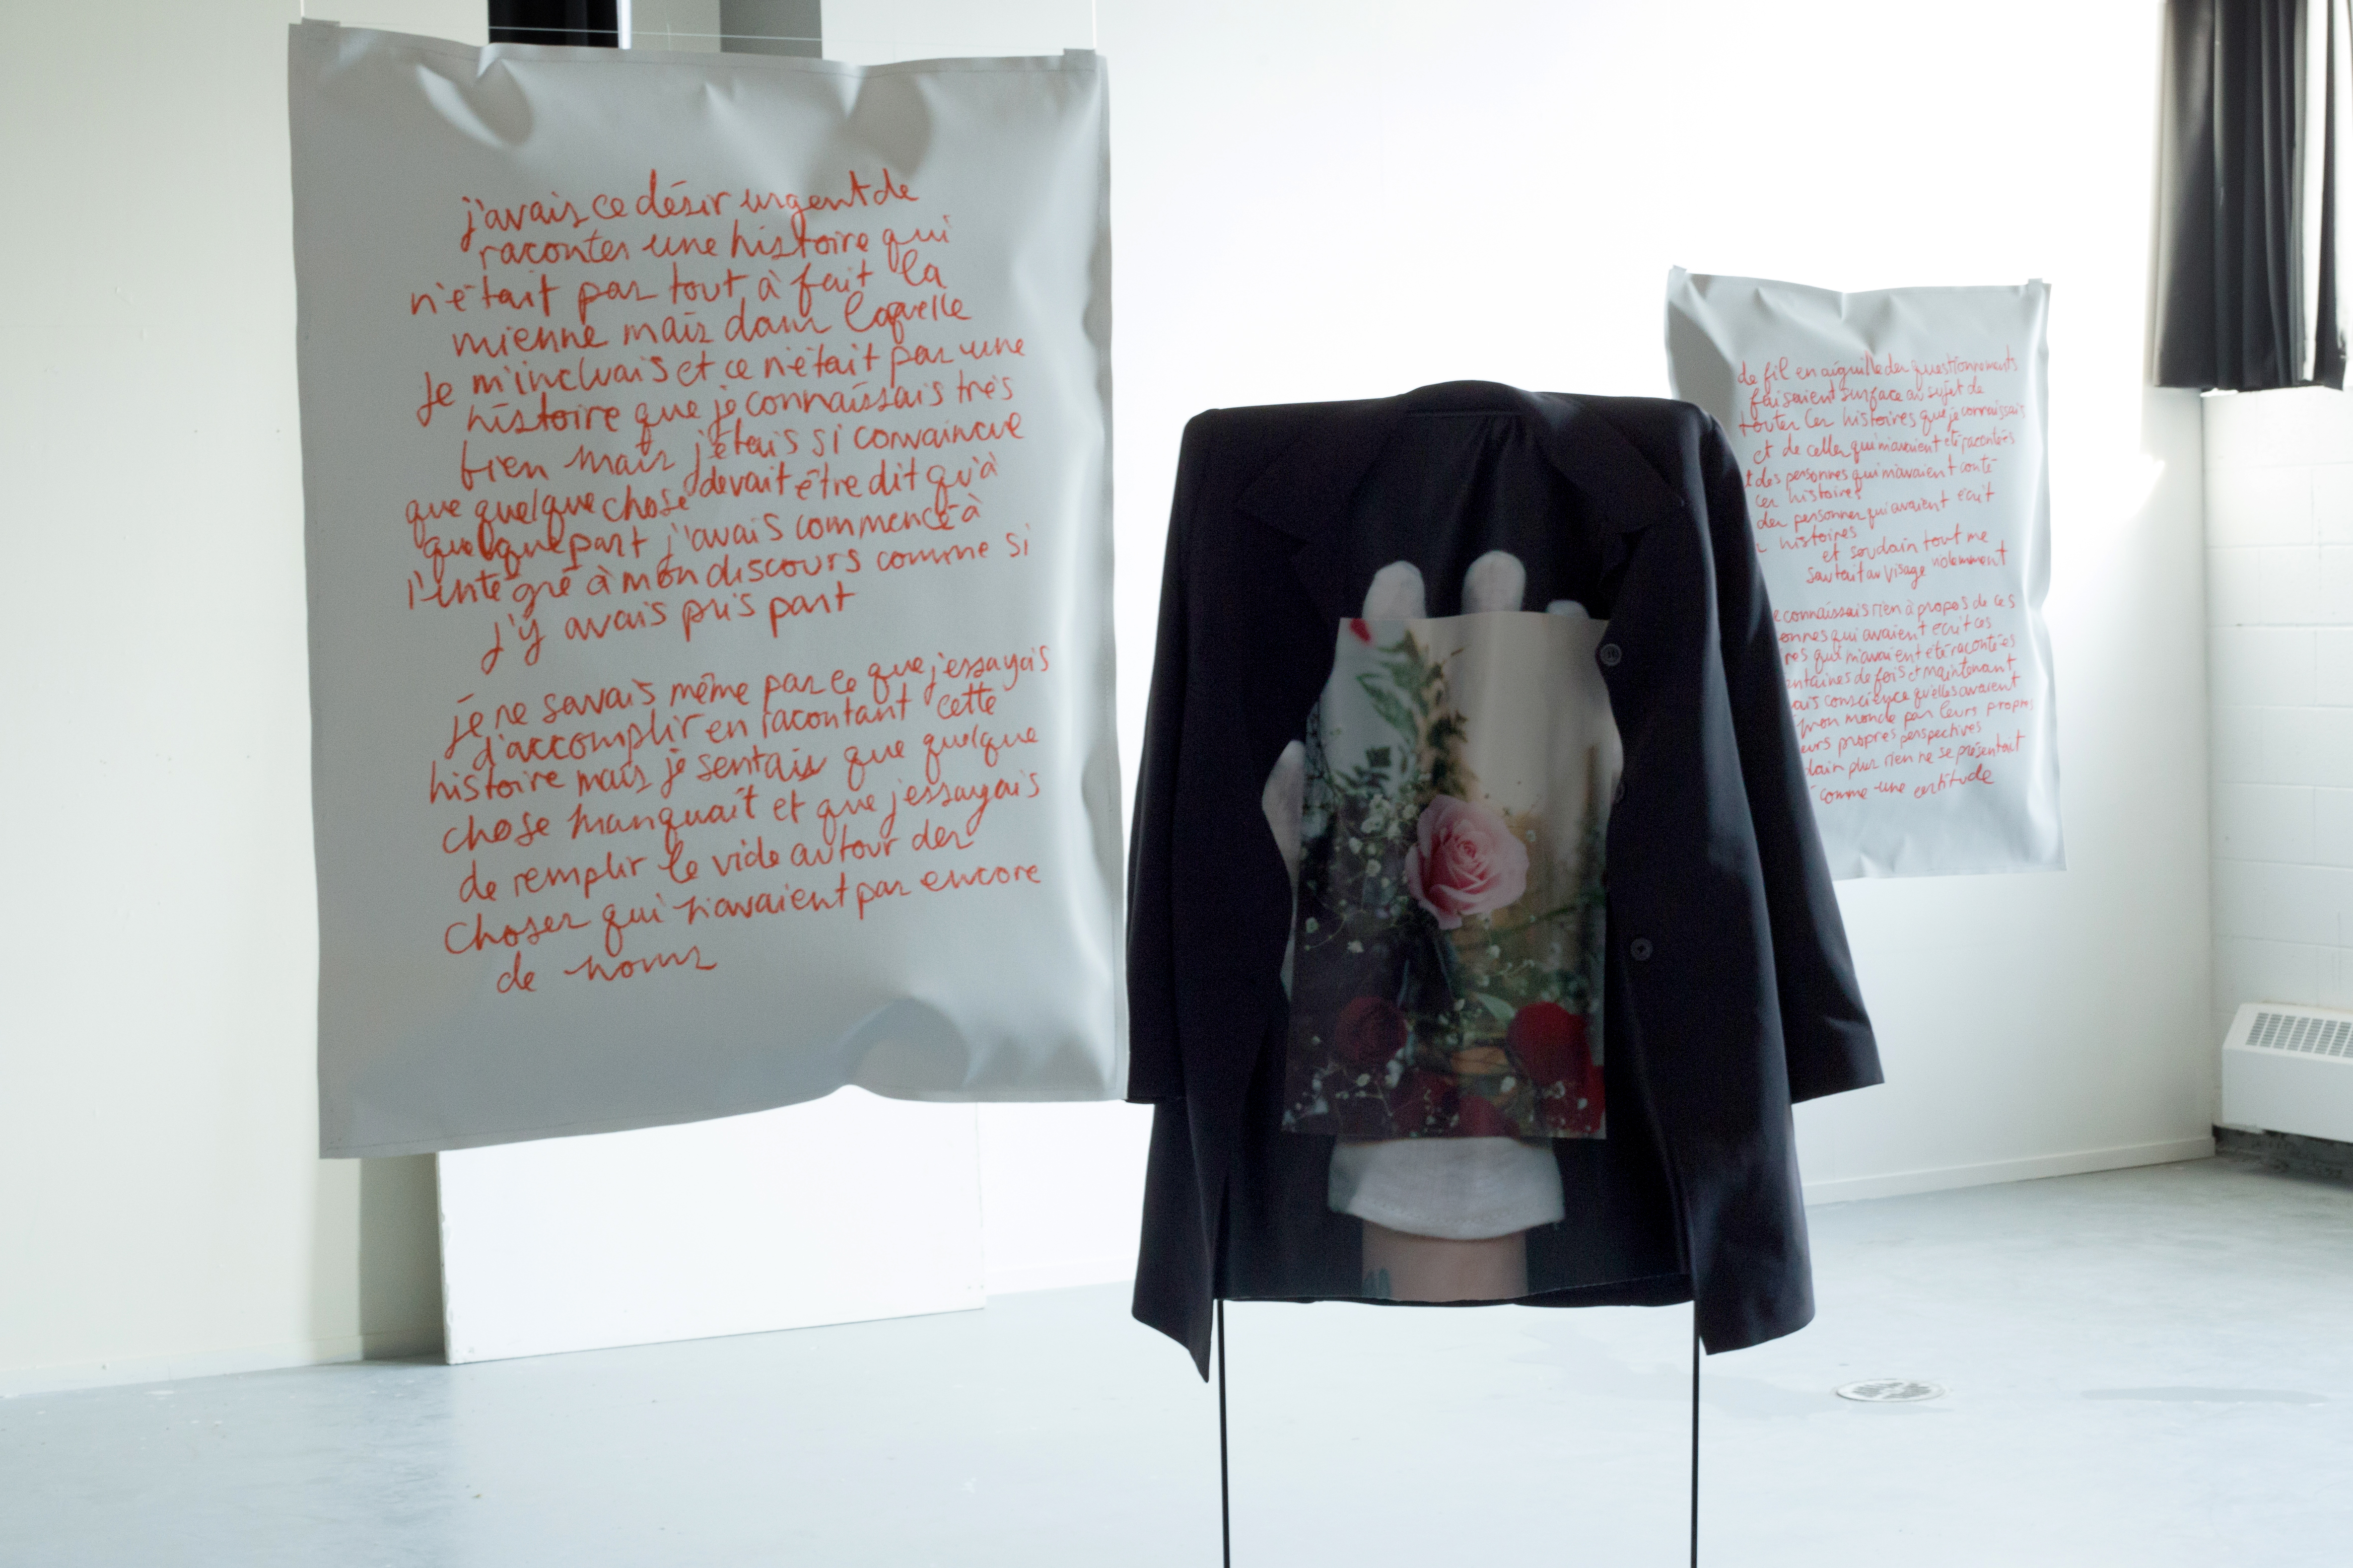 j'avais ce désir urgent de
raconter une histoire qui
n'était pas tout à fait la
mienne mais dans laquelle
je m'incluais et ce n'était pas une
histoire que je connaissais très
bien mais j'étais si convaincue
que quelque chose devait être dit qu'à
quelque part j'avais commencé à
l'intégré à mon discours comme si
j'y avais pris part
je ne savais même pas ce que j'essayais
d'accomplir en racontant cette
histoire mais je sentais que quelque
chose manquait et que j'essayais
de remplir le vide autour des
choses qui n'avaient pas encore
de noms
de fil en aiguille des questionnements
faisaient surface au sujet de
toutes ces histoires que je connaissais
et de celles qui m'avaient été racontées
t des personnes qui m'avaient conté
ces histoires
des personnes qui avaient écrit
histoires
et soudain tout me
sautait au visage violemment
e connaissais rien à propos de ces
onnes qui avaient écrit ces
res qui m'avaient été racontées
ntaines de fois et maintenant
ais conscience qu'elles avaient
mon monde par leurs propres
eurs propres perspectives
dain plus rien ne se présentait
comme une certitude